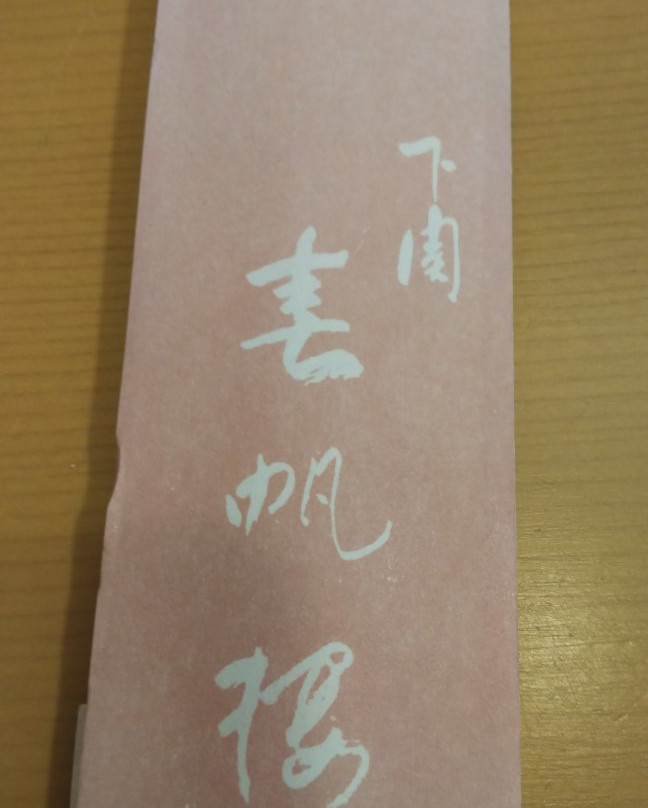 下関
春帆楼